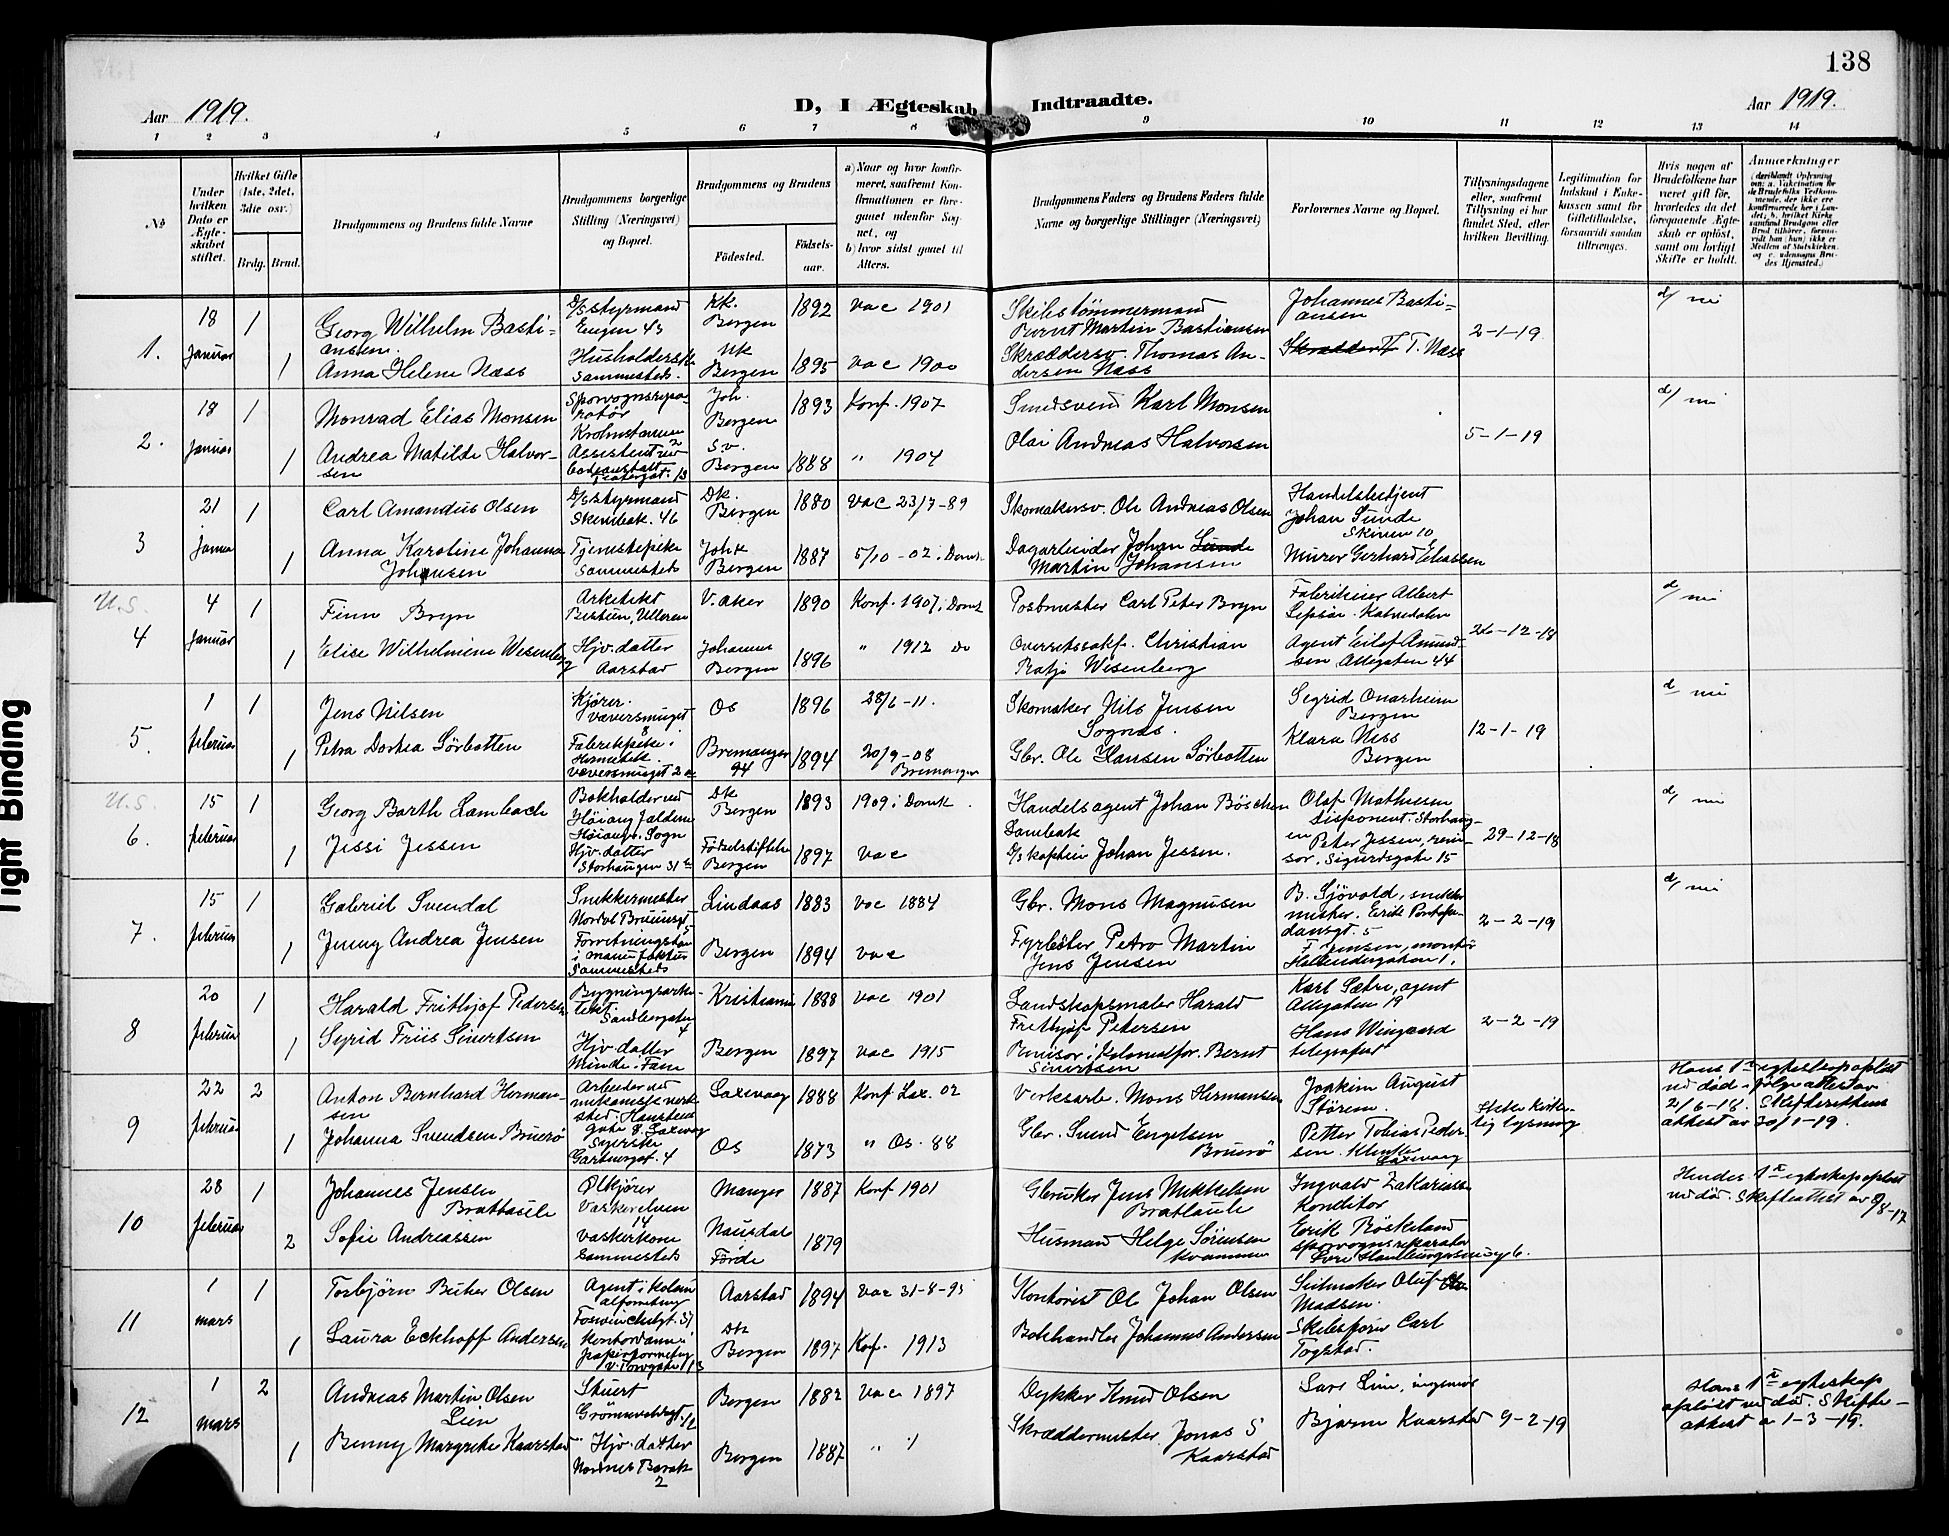 138
Aar 1919.
D, I Ægteskab Indtraadte.
Aar 1919.
1 2 3 4 5 6 7 8 9 10 11 12 13 14
No
Under hvilken Dato er Ægteskabet stiftet.
Hvilket Gifte (1ste, 2det, 3die osv.)
Brdg. Brud.
Brudgommens og Brudens fulde Navne
Brudgommens borgerlige Stilling (Næringsvei) og Bopæl.
Brudgommens og Brudens
Födested.
Födselsaar.
a) Naar og hvor konfirmeret, saafremt Konfirmationen er foregaaet udenfor Sognet, og
b) hvor sidst gaaet til Alters.
Brudgommens Faders og Brudens Faders fulde Navne og borgerlige Stillinger (Næringsvei)
Forlovernes Navne og Bopæl.
Tillysningsdagene eller, saafremt Tillysning ei har fundet Sted, efter hvilken Bevilling.
Legitimation for Indskud i Enkekassen samt for Giftetilladelse, forsaavidt saadan tiltrænges.
Hvis nogen af Brudefolkene har været gift før, hvorledes da det foregaaende Ægteskab er opløst, samt om lovligt Skifte er holdt.
Anmærkninger
1. 18 Januar 1 Georg Wilhelm Bastiansen D/S styrmand Engen 43 Kk. Bergen 1892 vac 1901
Bernt Martin Bastiansen
Johannes Bastiansen
2-1-19
d/ nei
1 Anna Helene Næss Husholderske sammesteds. Nk Bergen 1895 vac 1900
Skræddersv. Thomas Andersen Næss
T. Næss
2. 18 Januar 1 Monrad Elias Monsen Sporvognsreparatør Joh. Bergen 1893 Konf. 1907
Smedsvend Karl Monsen
5-1-19
d/ nei
1 Andrea Matilde Halvorsen Assistent Sv. Bergen 1888 " 1904
Olai Andreas Halvorsen
3 21 1 Carl Amandus Olsen D/S styrmand 46 Dk. Bergen 1880 vac 23/7-89
Skomakersv. Ole Andreas Olsen
Handelsbetjent Johan Sunde Skiven 10
1 Anna Karoline Johanna Johansen Tjenestepike sammesteds Johk Bergen 1887 5/10-02 i Domk
Dagarbeider Johan Sunde Martin Johansen
Murer Gerhard Eliassen
U.S.
4 4 Januar 1 Finn Bryn Arkitekt Bestien, Ulleren V. Aker 1890 Konf. 1907 i Domk
Postmester Carl Peter Bryn
Fabrikeier Albert Kalvedalen
26-12-18
d/ nei
1 Elise Wilhelmine Wesenberg Hjv. datter Aarstad Johannes Bergen 1896 " 1912 Do
Overretssakf. Christian Wesenberg
Agent Eilef Amundsen Allegaten 44
5. 1 februar 1 Jens Nilsen Kjører. Væversmuget 8 Os 1896 28/6-11.
Skomaker Nils Jensen Sognas.
Sigrid Onarheim Bergen
12-1-19
d/ nei
1 Petra Dortea Sörbotten Fabrikkpike i Væversmuget Bremanger 94 1894 20/9-08 Bremanger
Gbr. Ole Hansen Sörbotten
Klara Ness Bergen
U.S.
6. 15 februar 1 Georg Barth Lambach Bokholder ved Dk Bergen 1893 1909 i Domk.
Handelsagent Johan Böschen
Olaf Mathiesen disponent. Storhaugen
29-12-18
d/ nei
1 Jessi Jessen Hjv. datter Storhaugen 31 Födselstiftelsen Bergen 1897 vac
D/S kaptein Johan Jessen.
Peter Jessen, revisor. Sigurdsgate 15
7. 15 februar 1 Gabriel Svendal Snekkermester Lindaas 1883 vac 1884
Gbr. Mons Magnusen
B. Sjövold, snekkermester.
2-2-19
d/ nei
1 Jenny Andrea Jensen sammesteds Bergen 1894 vac
Fyrbøter Petro Martin Jens Jensen
F Jensen, montör Hollendergaten 1.
8 20 februar 1 Harald Frithjof Pedersen Bygningsarkitekt. Sandbergaten 4 Kristiania 1888 vac 1901
Landskapsmaler Harald Frithjof Petersen
Karl Sætre, agent Allegaten 19
2-2-19
1 Sigrid Friis Sivertsen Hjv. datter Minde. Fane Bergen 1897 vac 1915
Revisor i Kolonialfor. Bernt Sivertsen
Hans Wingaard telegrafist
9 22 februar 2 Anton Bernhard Hermansen Arbeider ved mekanisk verksted. Laxevaag 1888 Konf Lax. 02
Verksarb. Mons Hermansen
Joakim August Störem.
Ikke kirkelig lysning
Hans 1ste egteskap opløst ved død ifølge attest av 21/6-18. Skifterettens attest av 20/1-19.
1 Johanna Svendsen Bruerö Syerske Gartnergt. 4 Os 1873 " Os. 88
Gbr. Svend Engelsen Bruerö
Petter Tobias Pedersen. Laxevaag
10 28 februar 1 Johannes Jensen Brattaule Ølkjører Vaskerelven 14 Manger 1887 Konf 1901
Gbruker Jens Mikkelsen Brattaule
Ingvald Zakariassen Konditor
Hendes 1ste egteskap opløst ved død. Skifteattest av 9/8-17
2 Sofie Andreassen Vaskerkone sammesteds Naustdal Förde 1879
Husmand Helge Sörensen Kvammen
Erik Röskeland sporvognsreparatør
11 1 mars 1 Torbjörn Buher Olsen Agent i kolonialforretning Aarstad 1894 vac 31-8-95
Kontorist Ole Johan Olsen
Seilmaker Oluf Madsen.
1 Laura Eckhoff Andersen Kontordame i papirforretning Dk Bergen 1897 Konf. 1913
Bokhandler Johannes Andersen
Skibsfører Carl Togstad.
12 1 mars 2 Andreas Martin Olsen Lien Stuert Bergen 1882 vac 1897
Dykker Knud Olsen
Lars Lien, ingeniør
9-2-19
Hans 1ste egteskap opløst ved død. Skifteattest a 1-3-19.
1 Benny Margrethe Kaarstad Hjv. datter Nordnes Barak 2 Bergen 1887 " "
Skræddermester. Jonas S Kaarstad
Bjarne Kaarstad
Tight Binding